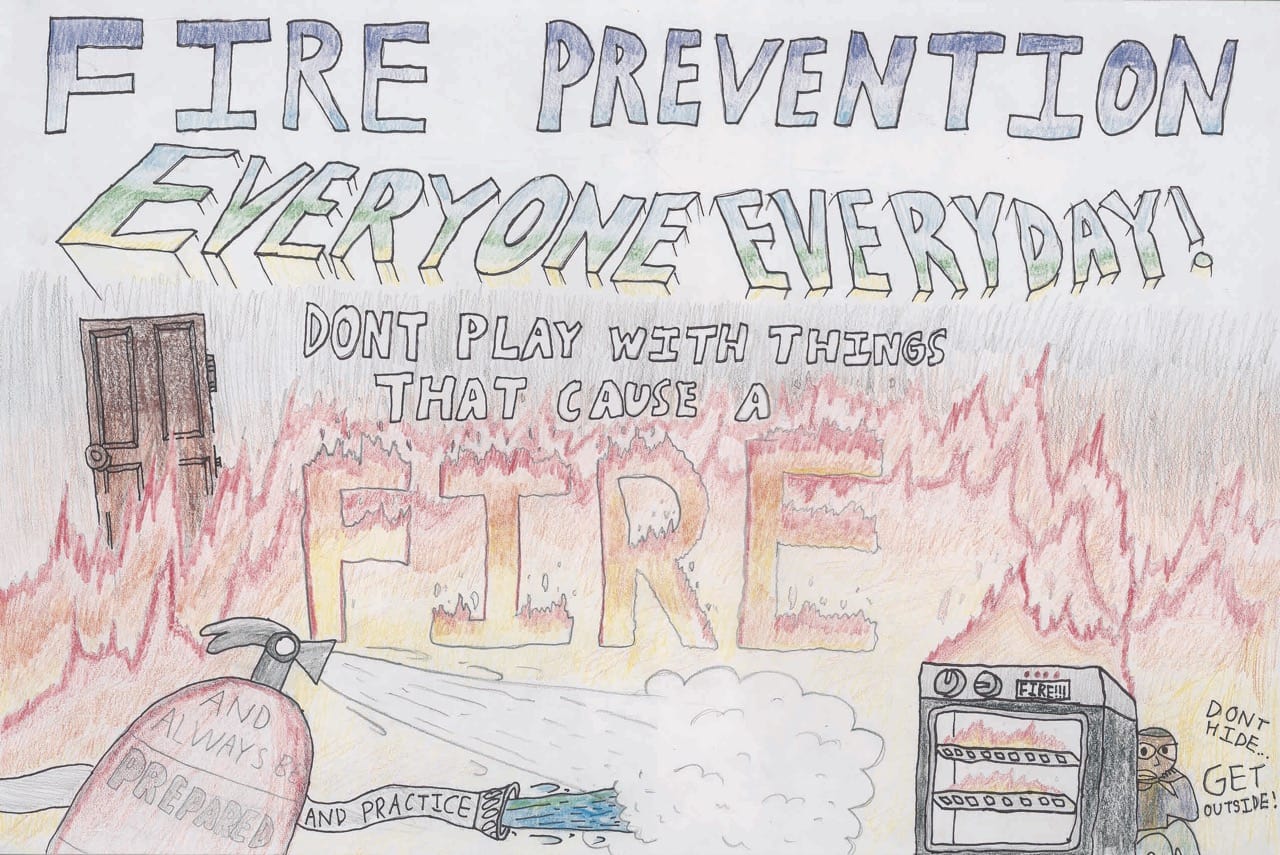 FIRE PREVENTION
EVERYONE EVERYDAY!
DONT PLAY WITH THINGS
THAT CAUSE A
FIRE
AND
ALWAYS BE
PREPARED
AND PRACTICE
FIRE!!!
DONT
HIDE...
GET
OUTSIDE!